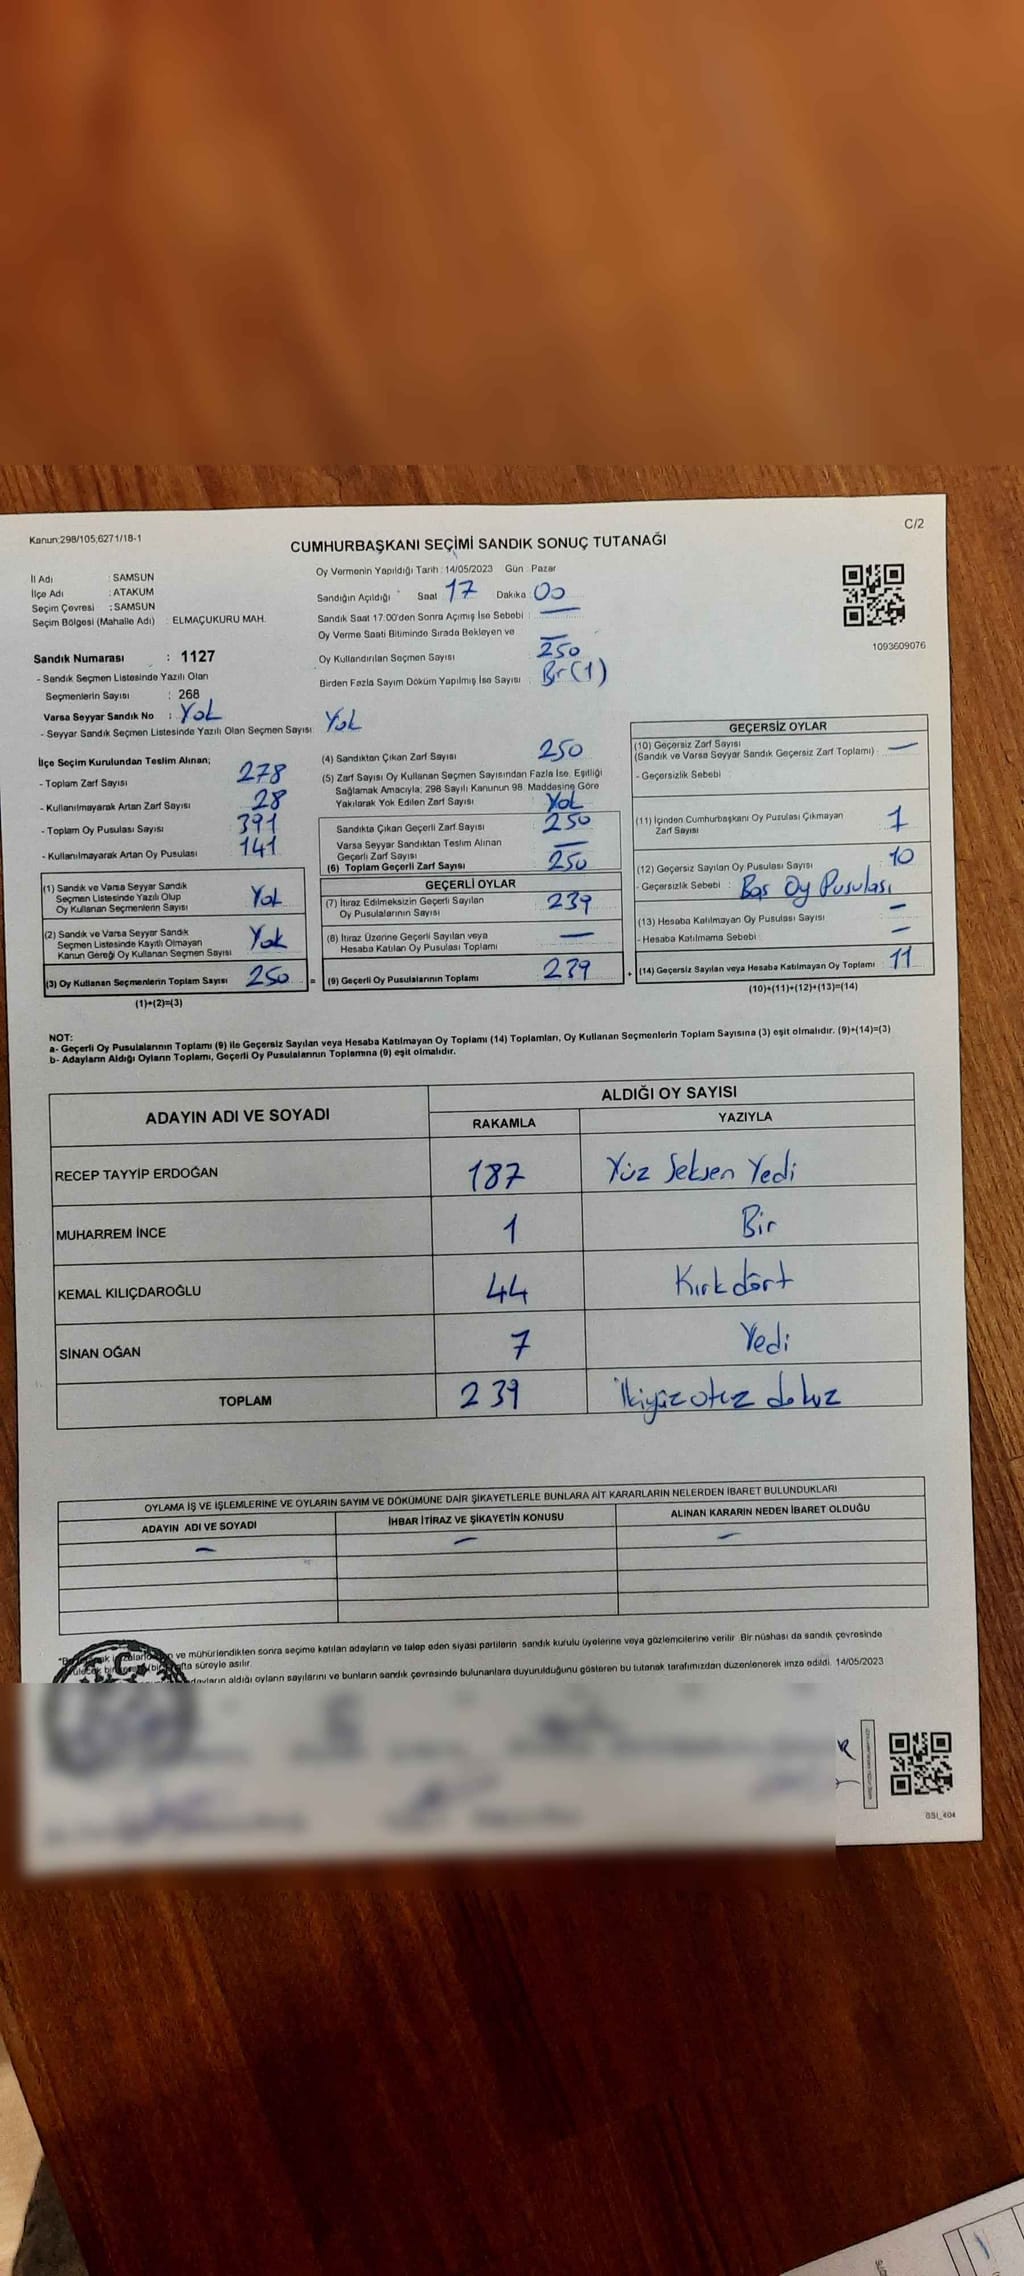 Kanun:298/105;6271/18-1
C/2
CUMHURBAŞKANI SEÇİMİ SANDIK SONUÇ TUTANAĞI
İl Adı : SAMSUN
İlçe Adı : ATAKUM
Seçim Çevresi : SAMSUN
Seçim Bölgesi (Mahalle Adı) : ELMAÇUKURU MAH.
Sandık Numarası : 1127
- Sandık Seçmen Listesinde Yazılı Olan
Seçmenlerin Sayısı : 268
Varsa Seyyar Sandık No : Yok
- Seyyar Sandık Seçmen Listesinde Yazılı Olan Seçmen Sayısı: Yok
Oy Vermenin Yapıldığı Tarih : 14/05/2023 Gün : Pazar
Sandığın Açıldığı Saat 17 Dakika : 00
Sandık Saat 17:00'den Sonra Açımış İse Sebebi : —
Oy Verme Saati Bitiminde Sırada Bekleyen ve —
Oy Kullandırılan Seçmen Sayısı 250
Birden Fazla Sayım Döküm Yapılmış İse Sayısı : Bir (1)
1093609076
İlçe Seçim Kurulundan Teslim Alınan;
- Toplam Zarf Sayısı 278
- Kullanılmayarak Artan Zarf Sayısı 28
- Toplam Oy Pusulası Sayısı 391
- Kullanılmayarak Artan Oy Pusulası 141
(1) Sandık ve Varsa Seyyar Sandık
Seçmen Listesinde Yazılı Olup
Oy Kullanan Seçmenlerin Sayısı Yok
(2) Sandık ve Varsa Seyyar Sandık
Seçmen Listesinde Kayıtlı Olmayan
Kanun Gereği Oy Kullanan Seçmen Sayısı Yok
(3) Oy Kullanan Seçmenlerin Toplam Sayısı 250 =
(1)+(2)=(3)
(4) Sandıktan Çıkan Zarf Sayısı 250
(5) Zarf Sayısı Oy Kullanan Seçmen Sayısından Fazla İse, Eşitliği
Sağlamak Amacıyla; 298 Sayılı Kanunun 98. Maddesine Göre
Yakılarak Yok Edilen Zarf Sayısı Yok
Sandıkta Çıkan Geçerli Zarf Sayısı 250
Varsa Seyyar Sandıktan Teslim Alınan
Geçerli Zarf Sayısı —
(6) Toplam Geçerli Zarf Sayısı 250
GEÇERLİ OYLAR
(7) İtiraz Edilmeksizin Geçerli Sayılan
Oy Pusulalarının Sayısı 239
(8) İtiraz Üzerine Geçerli Sayılan veya
Hesaba Katılan Oy Pusulası Toplamı —
(9) Geçerli Oy Pusulalarının Toplamı 239 +
GEÇERSİZ OYLAR
(10) Geçersiz Zarf Sayısı
(Sandık ve Varsa Seyyar Sandık Geçersiz Zarf Toplamı) : —
- Geçersizlik Sebebi :
(11) İçinden Cumhurbaşkanı Oy Pusulası Çıkmayan
Zarf Sayısı 1
(12) Geçersiz Sayılan Oy Pusulası Sayısı 10
- Geçersizlik Sebebi : Boş Oy Pusulası
(13) Hesaba Katılmayan Oy Pusulası Sayısı —
- Hesaba Katılmama Sebebi : —
(14) Geçersiz Sayılan veya Hesaba Katılmayan Oy Toplamı 11
(10)+(11)+(12)+(13)=(14)
NOT:
a- Geçerli Oy Pusulalarının Toplamı (9) ile Geçersiz Sayılan veya Hesaba Katılmayan Oy Toplamı (14) Toplamları, Oy Kullanan Seçmenlerin Toplam Sayısına (3) eşit olmalıdır. (9)+(14)=(3)
b- Adayların Aldığı Oyların Toplamı, Geçerli Oy Pusulalarının Toplamına (9) eşit olmalıdır.
ADAYIN ADI VE SOYADI
ALDIĞI OY SAYISI
RAKAMLA YAZIYLA
RECEP TAYYİP ERDOĞAN 187 Yüz Seksen Yedi
MUHARREM İNCE 1 Bir
KEMAL KILIÇDAROĞLU 44 Kırk dört
SİNAN OĞAN 7 Yedi
TOPLAM 239 İkiyüz otuz dokuz
OYLAMA İŞ VE İŞLEMLERİNE VE OYLARIN SAYIM VE DÖKÜMÜNE DAİR ŞİKAYETLERLE BUNLARA AİT KARARLARIN NELERDEN İBARET BULUNDUKLARI
ADAYIN ADI VE SOYADI İHBAR İTİRAZ VE ŞİKAYETİN KONUSU ALINAN KARARIN NEDEN İBARET OLDUĞU
— — —
ve mühürlendikten sonra seçime katılan adayların ve talep eden siyasi partilerin sandık kurulu üyelerine veya gözlemcilerine verilir. Bir nüshası da sandık çevresinde
süreyle asılır.
aldığı oyların sayılarını ve bunların sandık çevresinde bulunanlara duyurulduğunu gösteren bu tutanak tarafımızdan düzenlenerek imza edildi. 14/05/2023
GSI_404